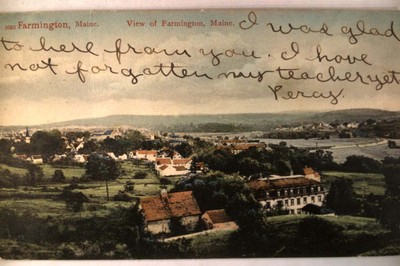 Farmington, Maine. View of Farmington, Maine. I was glad
to here from you. I have
not forgotten my teacheryet
Percy.